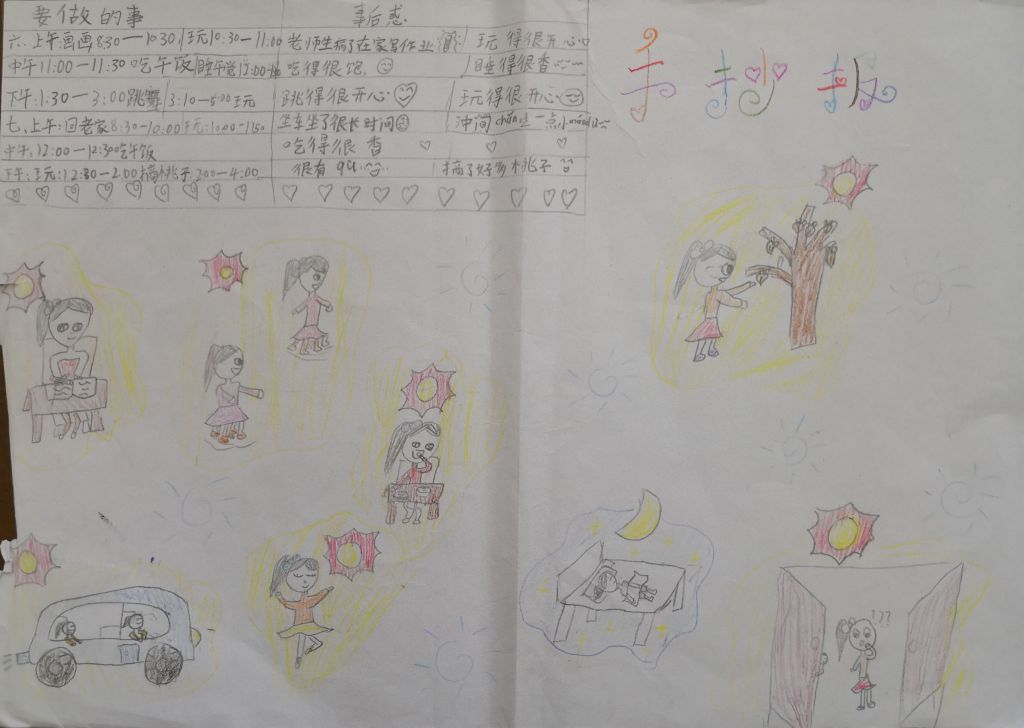 要做的事 事后感
六、上午:画画8:30—10:30,玩10:30—11:00 老师生病了在家写作业 玩得很开心
中午11:00—11:30吃午饭 睡午觉12:00 吃得很饱, 睡得很香
下午:1:30—3:00跳舞 3:10—5:00玩 跳得很开心 玩得很开心
七、上午:回老家8:30-10:00 玩:10:00-11:50 坐车坐了很长时间 一点小
中午:12:00—12:30吃午饭 吃得很香
下午:玩:12:30—2:00摘桃子,2:00—4:00 很有 摘了好多桃子
手抄报
???